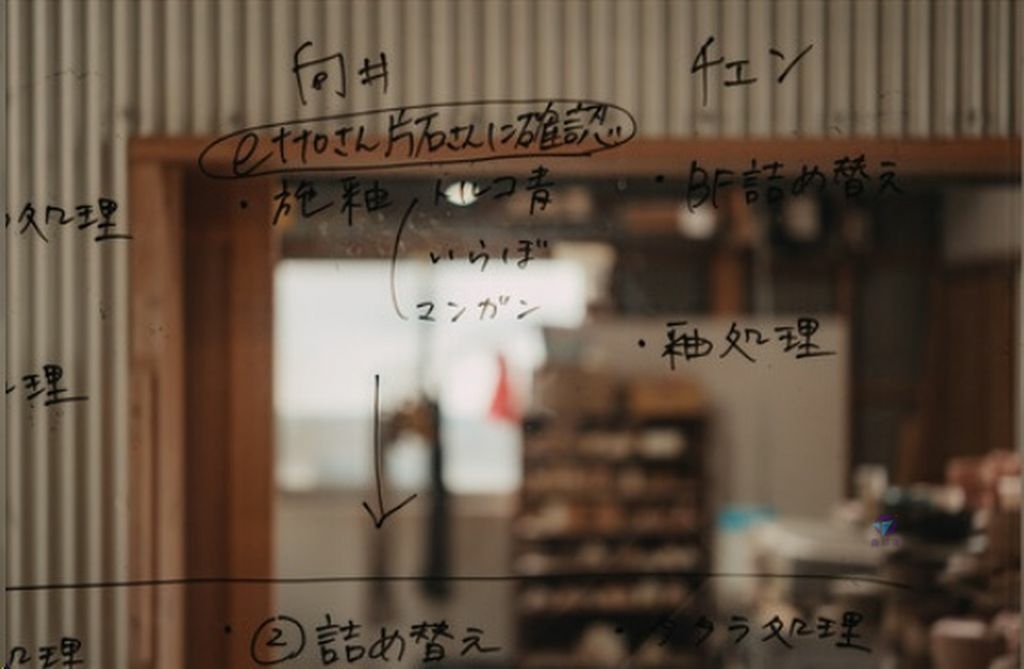 向井
チェン
ettoさん片石さんに確認
・施釉 トルコ青
いらぼ
マンガン
・BF詰め替え
処理
・釉処理
理
・②詰め替え
・タタラ処理
処理